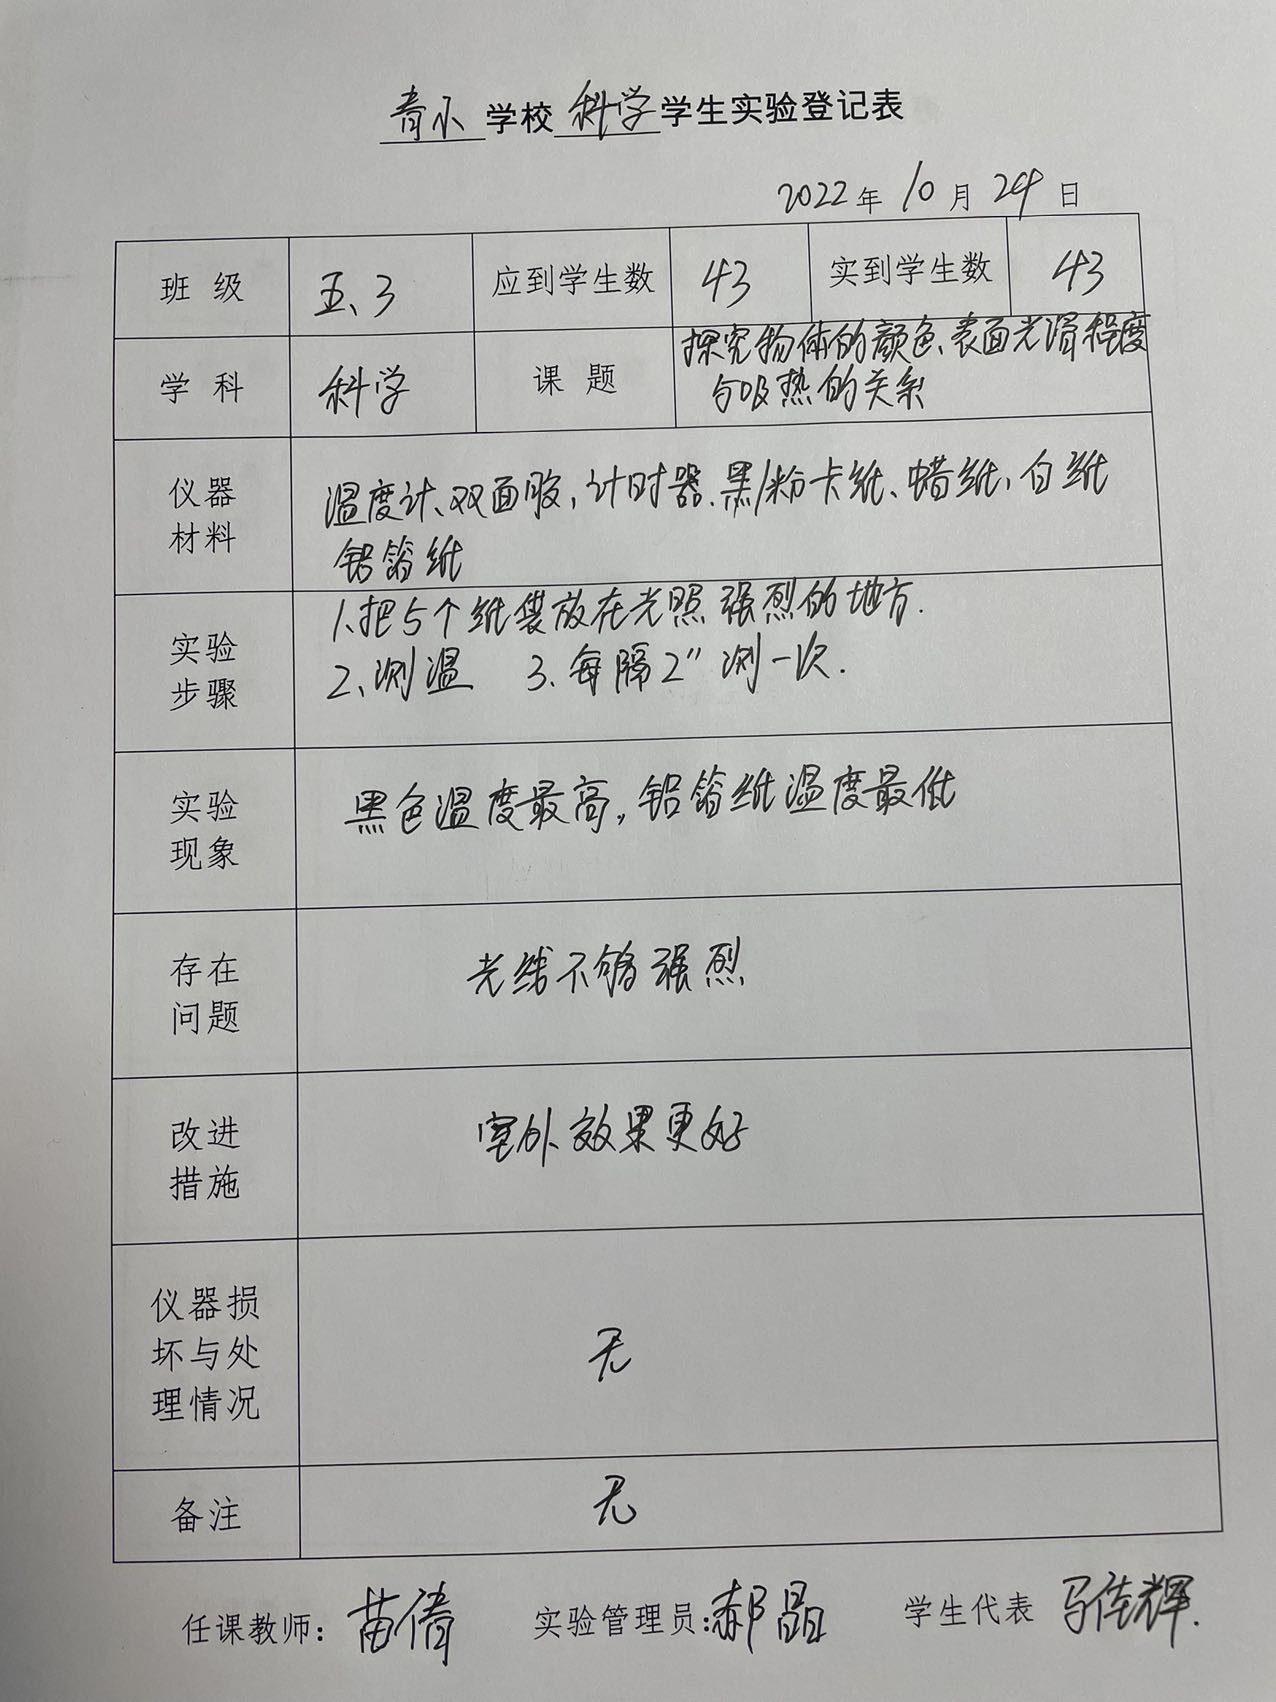 青小学校科学学生实验登记表
2022年10月24日
班级 五、3 应到学生数 43 实到学生数 43
学科 科学 课题 探究物体的颜色、表面光滑程度
与吸热的关系
仪器
材料
温度计、双面胶,计时器、黑/粉卡纸、蜡纸、白纸
铝箔纸
实验
步骤
1、把5个纸袋放在光照强烈的地方.
2、测温 3、每隔2"测一次.
实验
现象
黑色温度最高,铝箔纸温度最低
存在
问题
光线不够强烈
改进
措施
室外效果更好
仪器损
坏与处
理情况
无
备注 无
任课教师:苗倩 实验管理员:郝晶 学生代表 马佳辉.